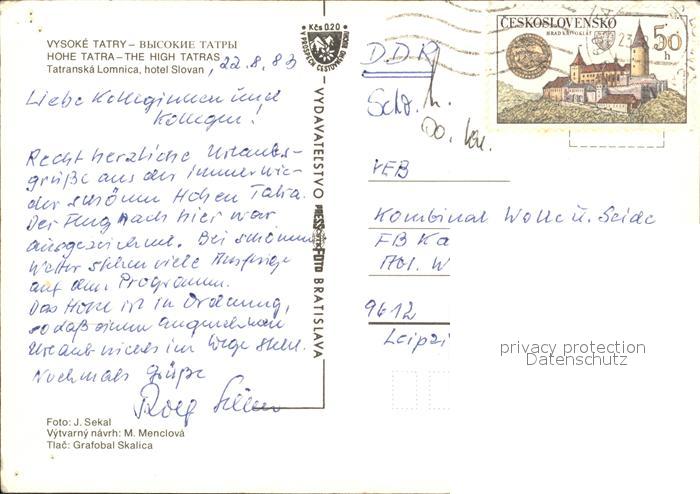 VYSOKÉ TATRY – ВЫСОКИЕ ТАТРЫ
HOHE TATRA – THE HIGH TATRAS
Tatranská Lomnica, hotel Slovan, 22.8.83
Liebe Kolleginnen und
Kollegen!
Recht herzliche Urlaubs-
grüße aus der immer wie-
der schönen Hohen Tatra.
Der Flug nach hier war
ausgezeichnet. Bei schönem
Wetter stehen viele Ausflüge
auf dem Programm.
Das Hotel ist in Ordnung,
so daß einem angenehmen
Urlaub nichts im Wege steht.
Nochmals Grüße
Rolf
Foto: J. Sekal
Výtvarný návrh: M. Menclová
Tlač: Grafobal Skalica
Kčs 0.20
VYDAVATEĽSTVO PRESSFOTO BRATISLAVA
ČESKOSLOVENSKO
HRAD KŘIVOKLÁT
50 h
DDR
VEB
Kombinat Wolle u. Seide
FB Ka
Abt. W
9612
Leipzi
privacy protection
Datenschutz